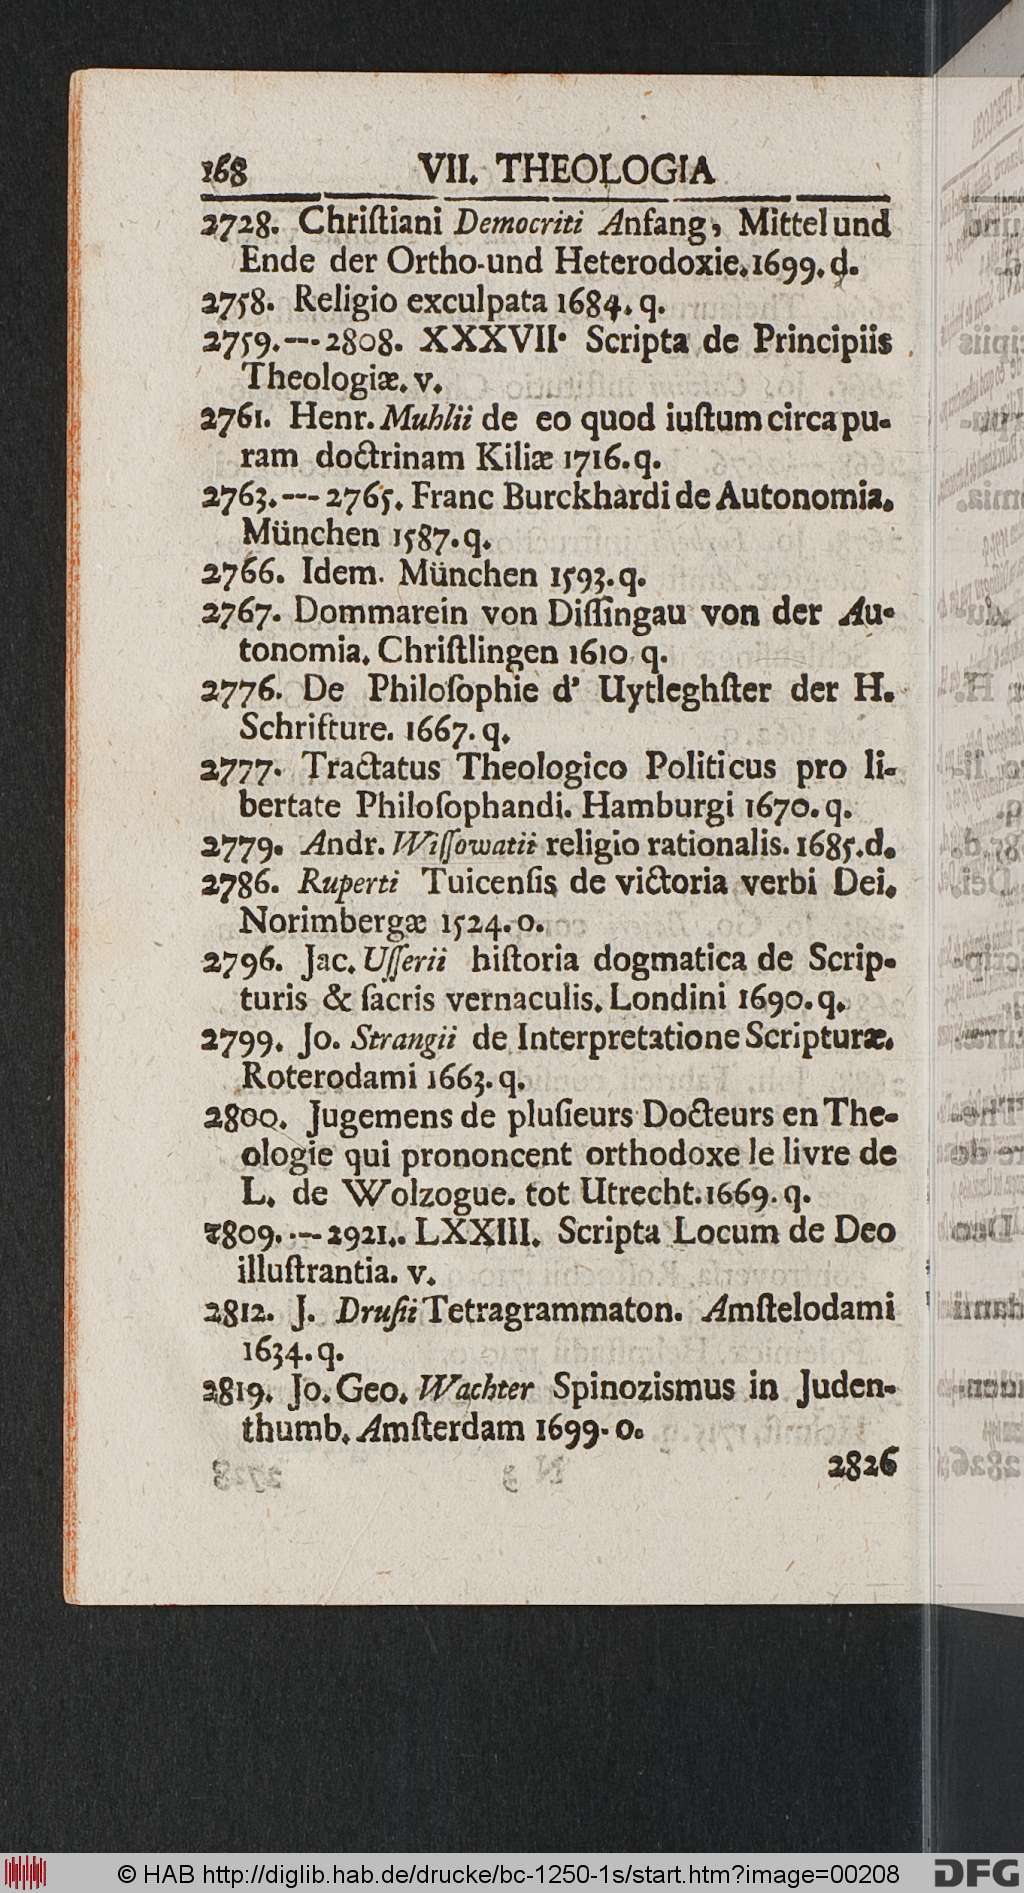 168 VII. THEOLOGIA
2728. Chriſtiani Democriti Anfang, Mittel und
Ende der Ortho-und Heterodoxie. 1699. d.
2758. Religio exculpata 1684. q.
2759.---2808. XXXVII. Scripta de Principiis
Theologiæ. v.
2761. Henr. Muhlii de eo quod iuſtum circa pu-
ram doctrinam Kiliæ 1716. q.
2763.---2765. Franc Burckhardi de Autonomia.
München 1587. q.
2766. Idem. München 1593. q.
2767. Dommarein von Diſſingau von der Au-
tonomia. Chriſtlingen 1610 q.
2776. De Philoſophie d' Uytleghſter der H.
Schrifture. 1667. q.
2777. Tractatus Theologico Politicus pro li-
bertate Philoſophandi. Hamburgi 1670. q.
2779. Andr. Wiſſowatii religio rationalis. 1685. d.
2786. Ruperti Tuicenſis de victoria verbi Dei.
Norimbergæ 1524. o.
2796. Jac. Uſſerii hiſtoria dogmatica de Scrip-
turis & ſacris vernaculis. Londini 1690. q.
2799. Jo. Strangii de Interpretatione Scripturæ.
Roterodami 1663. q.
2800. Jugemens de pluſieurs Docteurs en The-
ologie qui prononcent orthodoxe le livre de
L. de Wolzogue. tot Utrecht. 1669. q.
2809.---2921.. LXXIII. Scripta Locum de Deo
illuſtrantia. v.
2812. J. Druſii Tetragrammaton. Amſtelodami
1634. q.
2819. Jo. Geo. Wachter Spinozismus in Juden-
thumb. Amſterdam 1699. o.
2826
© HAB http://diglib.hab.de/drucke/bc-1250-1s/start.htm?image=00208 DFG